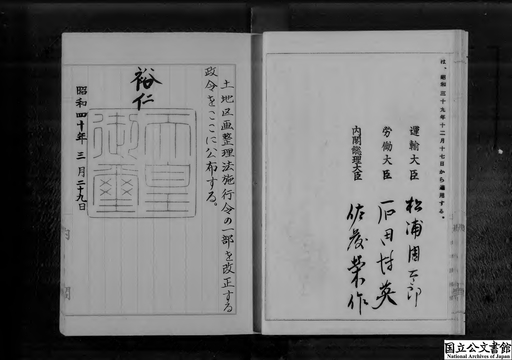 は、昭和三十九年十二月十七日から適用する。
運輸大臣 松浦周太郎
労働大臣 石田博英
内閣総理大臣 佐藤榮作
土地区画整理法施行令の一部を改正する
政令をここに公布する。
裕仁
天皇
御璽
昭和四十年三月二十九日
国立公文書館
National Archives of Japan